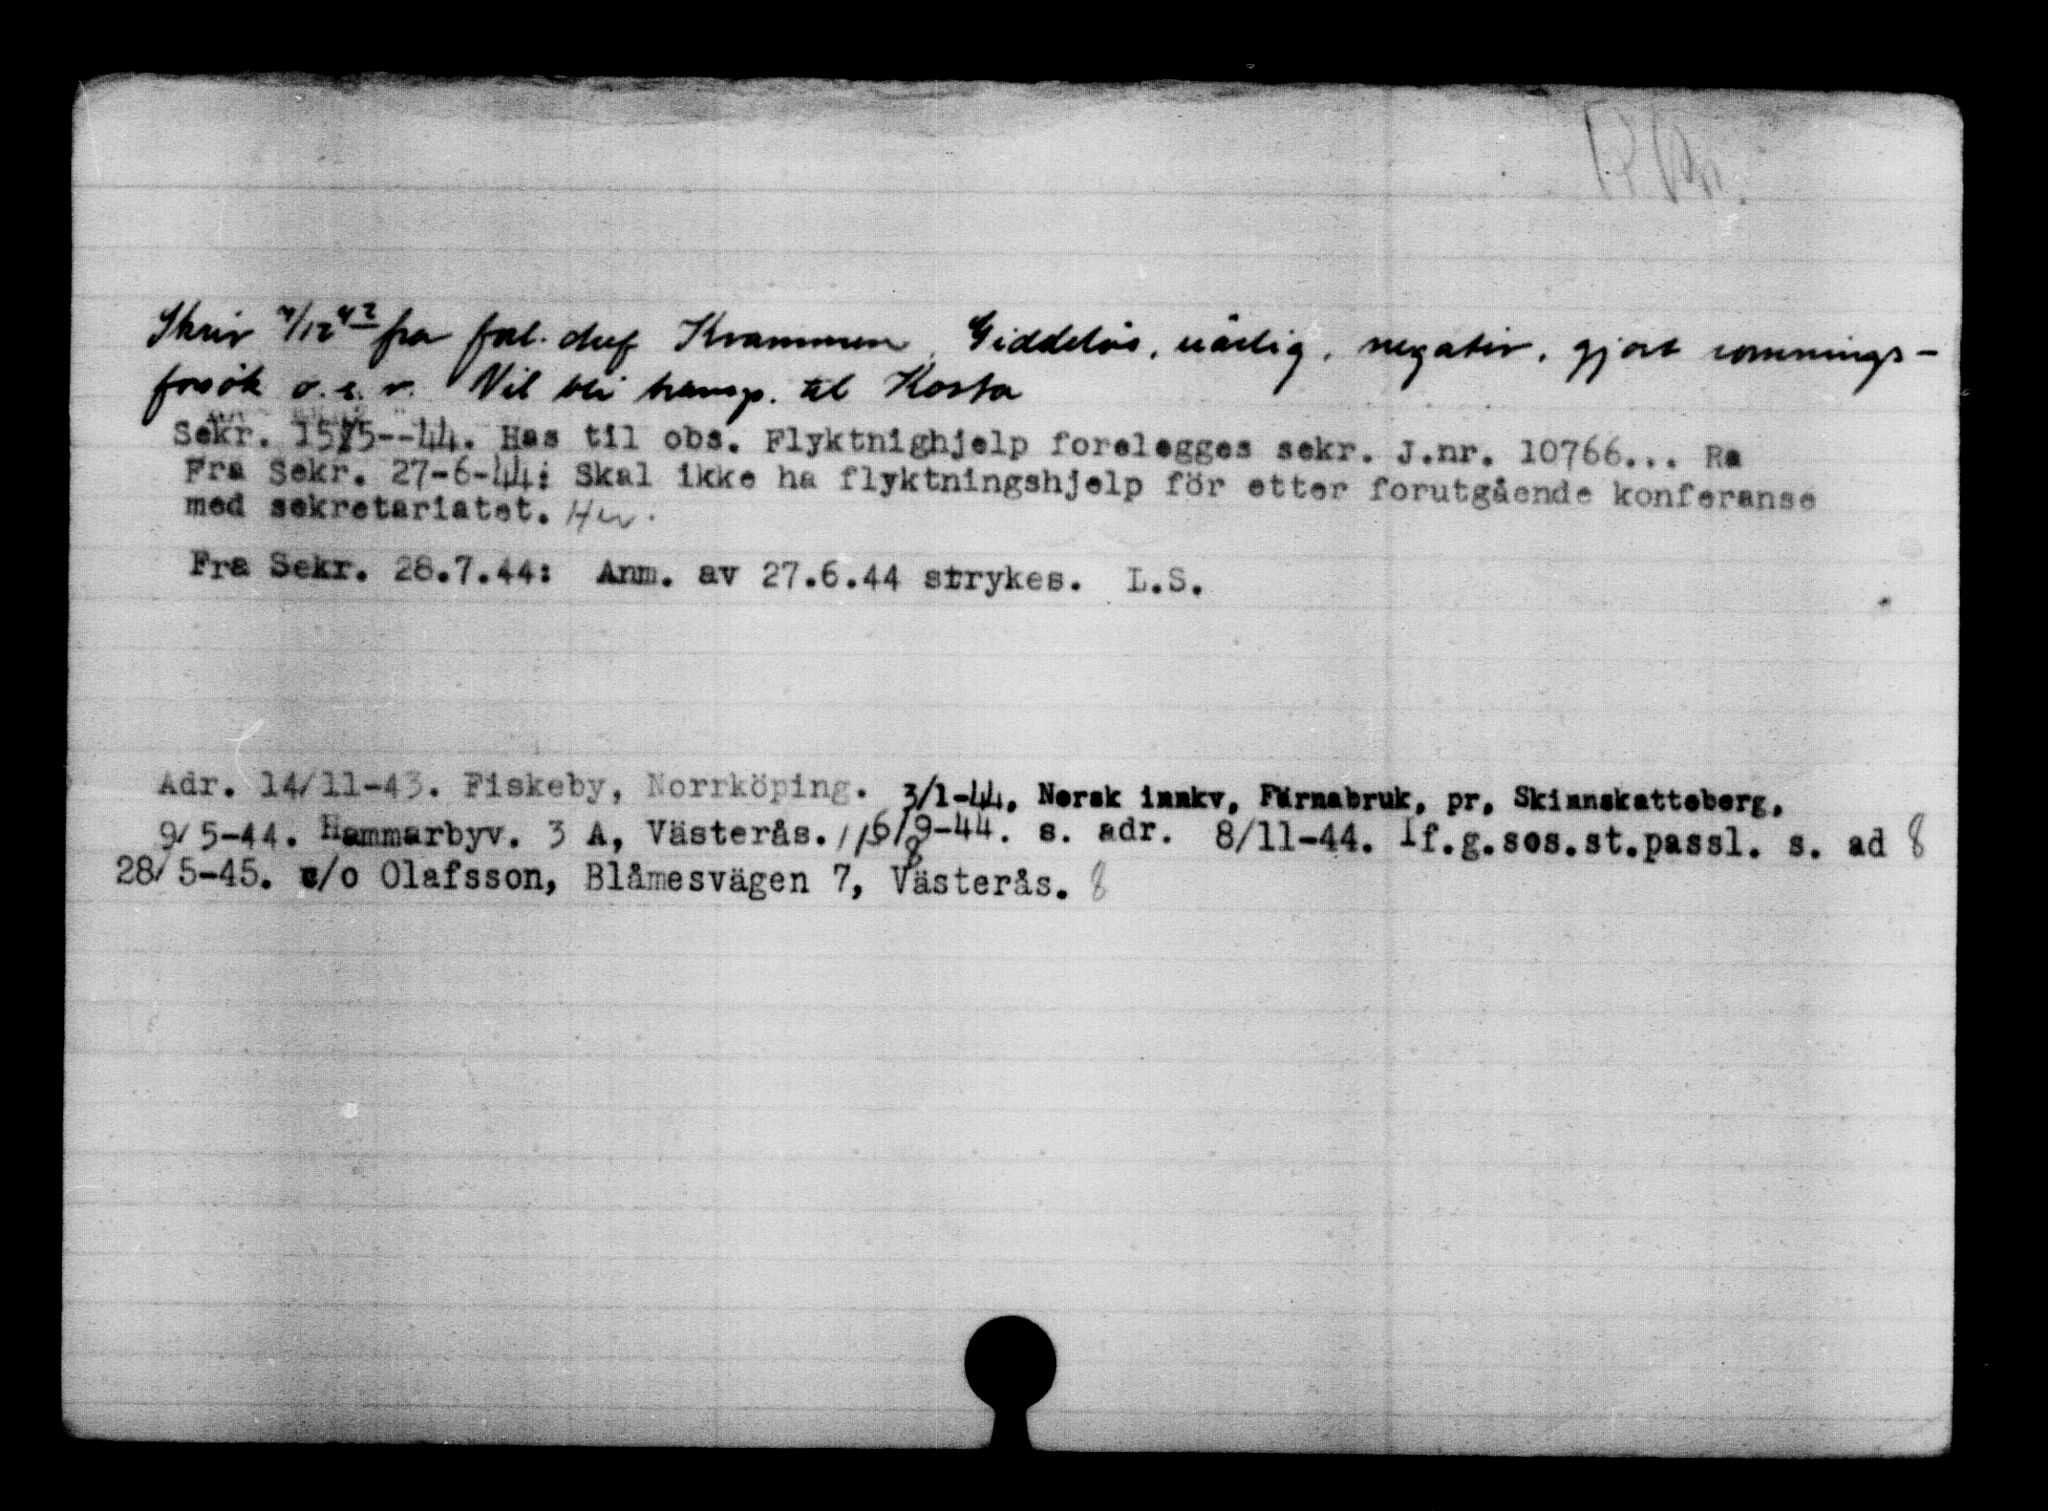 Skriv 4/12 42 fra forl. chef Kvammen. Giddelös, uärlig, negativ, gjort römnings-
forsök o.s.v. Vil bli transp. til Kosta
Sekr. 15/5--44. Has til obs. Flyktnighjelp forelegges sekr. J.nr. 10766... Ra
Fra Sekr. 27-6-44: Skal ikke ha flyktningshjelp för etter forutgående konferanse
med sekretariatet. Hw.
Fra Sekr. 28.7.44: Anm. av 27.6.44 strykes. L.S.
Adr. 14/11-43. Fiskeby, Norrköping. 3/1-44. Norsk innkv, Färnabruk, pr, Skinnskatteberg.
9/5-44. Hammarbyv. 3 A, Västerås. 6/9-44. s. adr. 8/11-44. If.g.sos.st.passl. s. ad
28/5-45. c/o Olafsson, Blåmesvägen 7, Västerås.